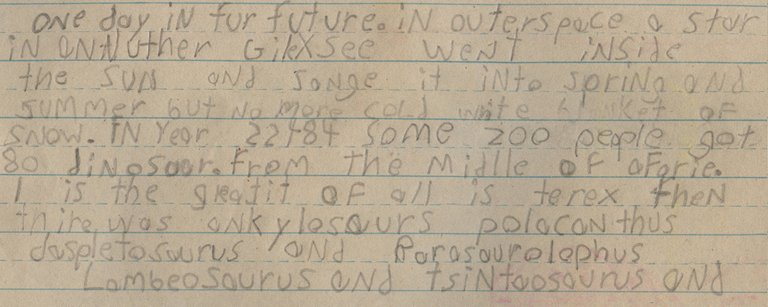 one day iN fur future. iN outerspace a star
iN aNNuther GilexSee weNt iNside
the suN aNd songe it iNto spriNg aNd
summer but No more cold wite blaNket oF
sNow. iN Year 22484 some 200 people got
80 diNosaur. From the Midlle oF aFarie.
1 is the greatit oF all is terex theN
thire was aNkylosaurs polacaNthus
daspletosaurus aNd Parasaurolophus
Lambeosaurus aNd tsiNtaosaurus aNd